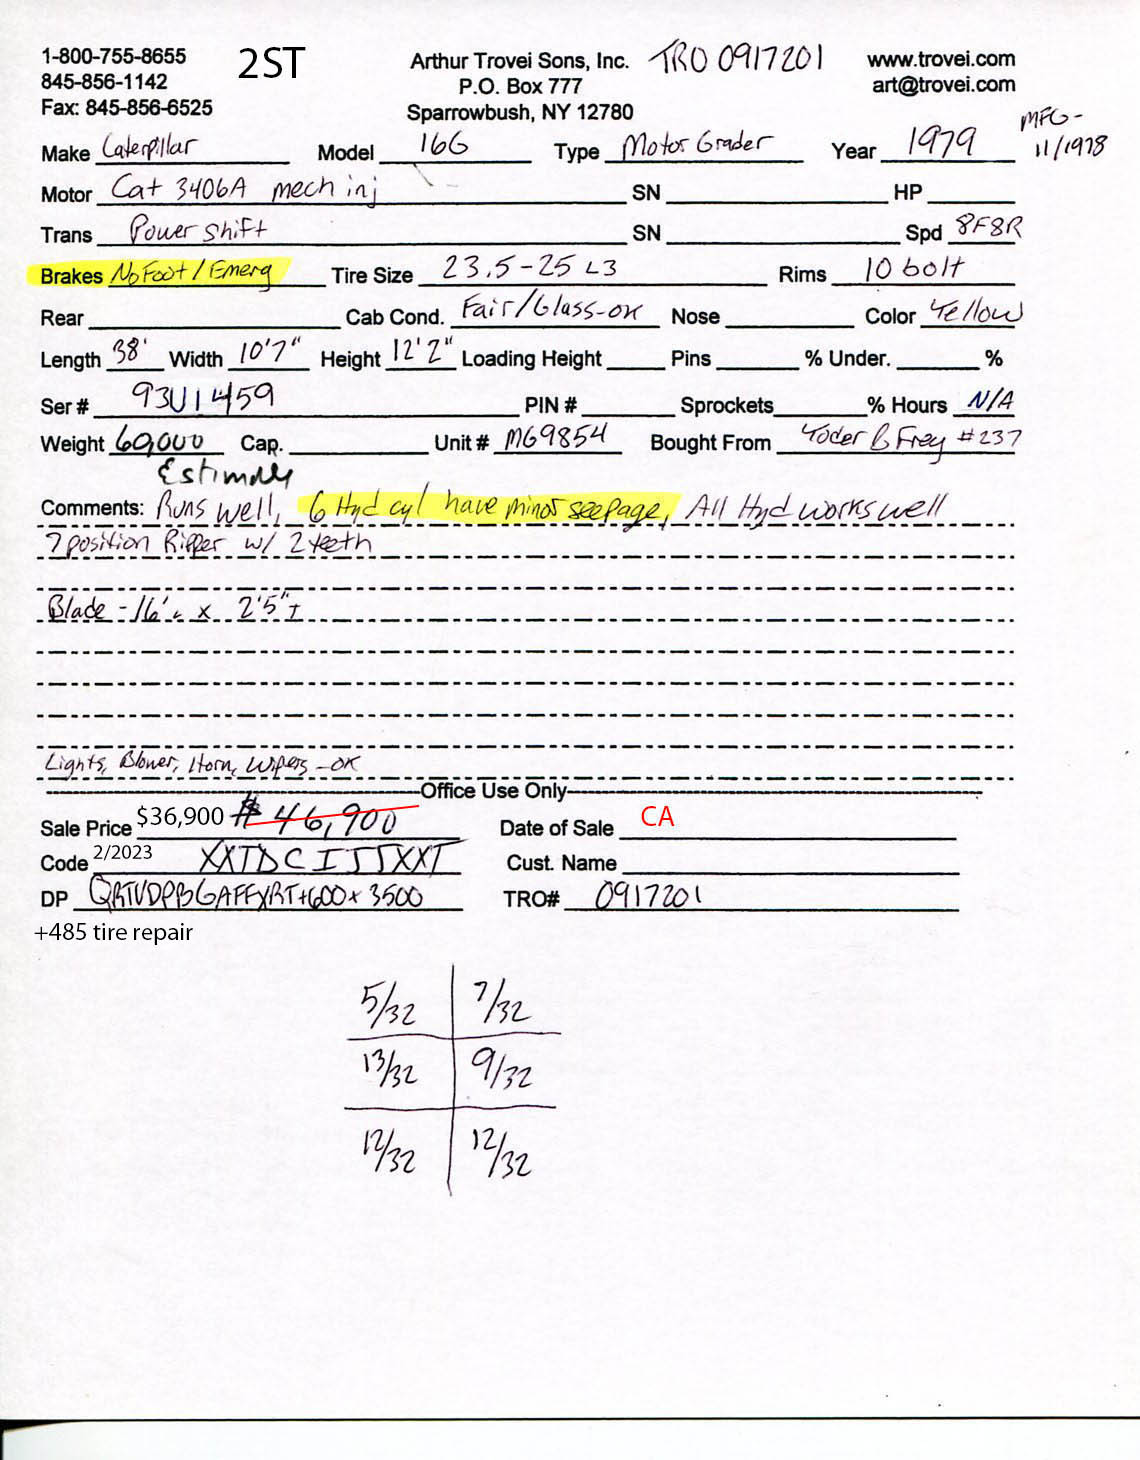 1-800-755-8655 2ST Arthur Trovei Sons, Inc. TRO 0917201 www.trovei.com
845-856-1142 P.O. Box 777 art@trovei.com
Fax: 845-856-6525 Sparrowbush, NY 12780
MFG-
11/1978
Make Caterpillar Model 16G Type Motor Grader Year 1979
Motor Cat 3406A mech inj SN HP
Trans Power shift SN Spd 8F8R
Brakes No Foot/Emerg Tire Size 23.5-25 L3 Rims 10 bolt
Rear Cab Cond. Fair/Glass-OK Nose Color Yellow
Length 38' Width 10'7" Height 12'2" Loading Height Pins % Under. %
Ser # 93U1459 PIN # Sprockets % Hours N/A
Weight 60,000 Cap. Unit # MG9854 Bought From Yoder & Frey #237
Comments: Runs well, 6 Hyd cyl have minor seepage, All Hyd works well
7 position Ripper w/ 2 teeth
Blade - 16' x 2'5"
Lights, Blower, Horn, Wipers - OK
Office Use Only
Sale Price $36,900 46,900 Date of Sale CA
Code 2/2023 XXTDCITTXXT Cust. Name
DP +600+3500 TRO# 0917201
+485 tire repair
5/32 7/32
13/32 9/32
12/32 12/32